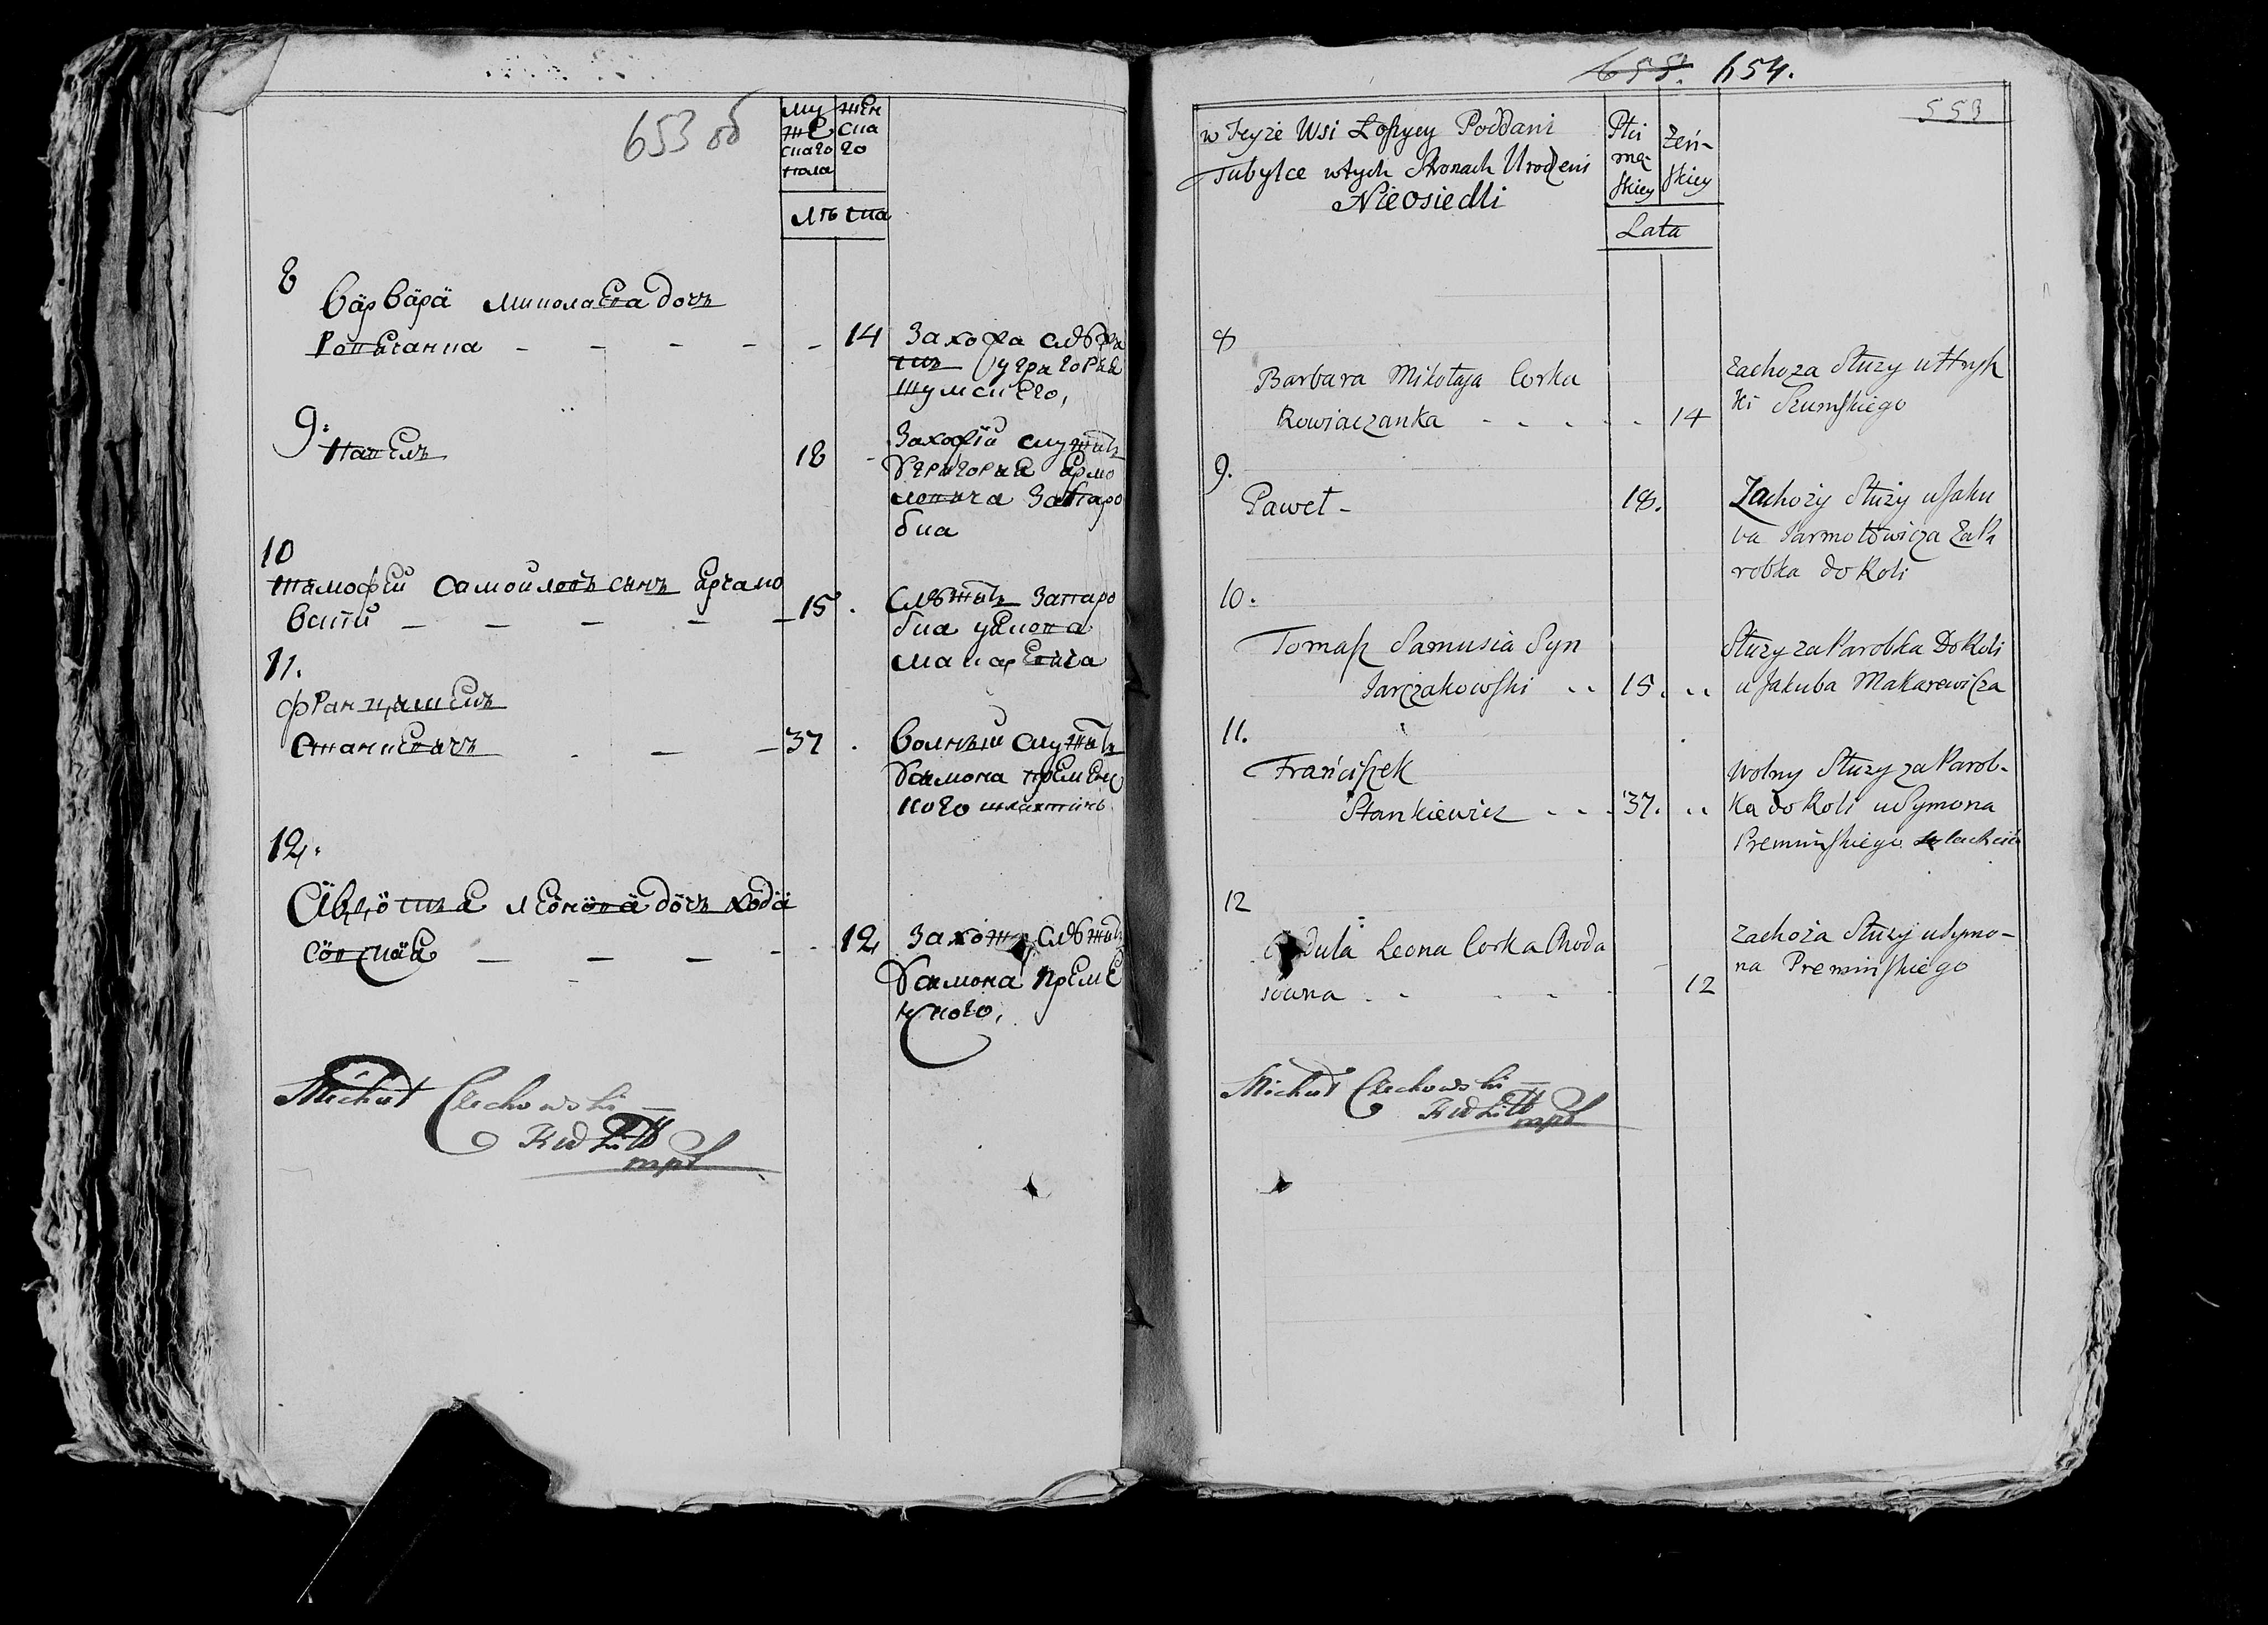 653 об
му жен
же ска
скаго го
пола
лѣта
8
Варвара Миколаева дочь
Ровѣчанка - - - - - 14 Захожа слѣжи
тъ у григорыя
Шумскего,
9.
Павелъ 18 Захожiй служитъ
у григорыя
за паро
бка
10
Тимофѣй Самойловъ сынъ
вскiй - - - - - 15 . Слѣжитъ запаро
бка
Макаревича
11.
Францишекъ
Станкевичъ . - - 37 . Волный служитъ
Усымона
кого
12.
Леонова дочь Хода
совная - - - - 12 Захожа слѣжитъ
Усымона Преме
кого,
Michał Czechowski
mpd
655. 654.
553
w Teyże Wsi Łoszycy Poddani
Tubylce w tych Stronach Urodzeni
Nieosiedli
Płci Żeń-
mę- skiey
skiey
Lata
8
Barbara Mikołaja Corka
Rowiaczanka - - - - - 14
Zachoża Służy u Hryh
ki Szumskiego
9.
Paweł - 18.
Zachoży Służy u Jaku
ba Jarmołowicza za Pa
robka do Roli
10.
Tomasz Samusia Syn
Jarczakowski .. 15. ..
Służy za Parobka Do Roli
u Jakuba Makarewicza
11.
Franciszek
Stankiewicz - - . 37. ..
Wolny Służy za Parob-
ka do Roli u Symona
Premińskiego
12
Leona Corka Choda
sowna . - - - . 12
Zachoża Służy u Symo-
na Premińskiego
Michał Czechowski
mpd